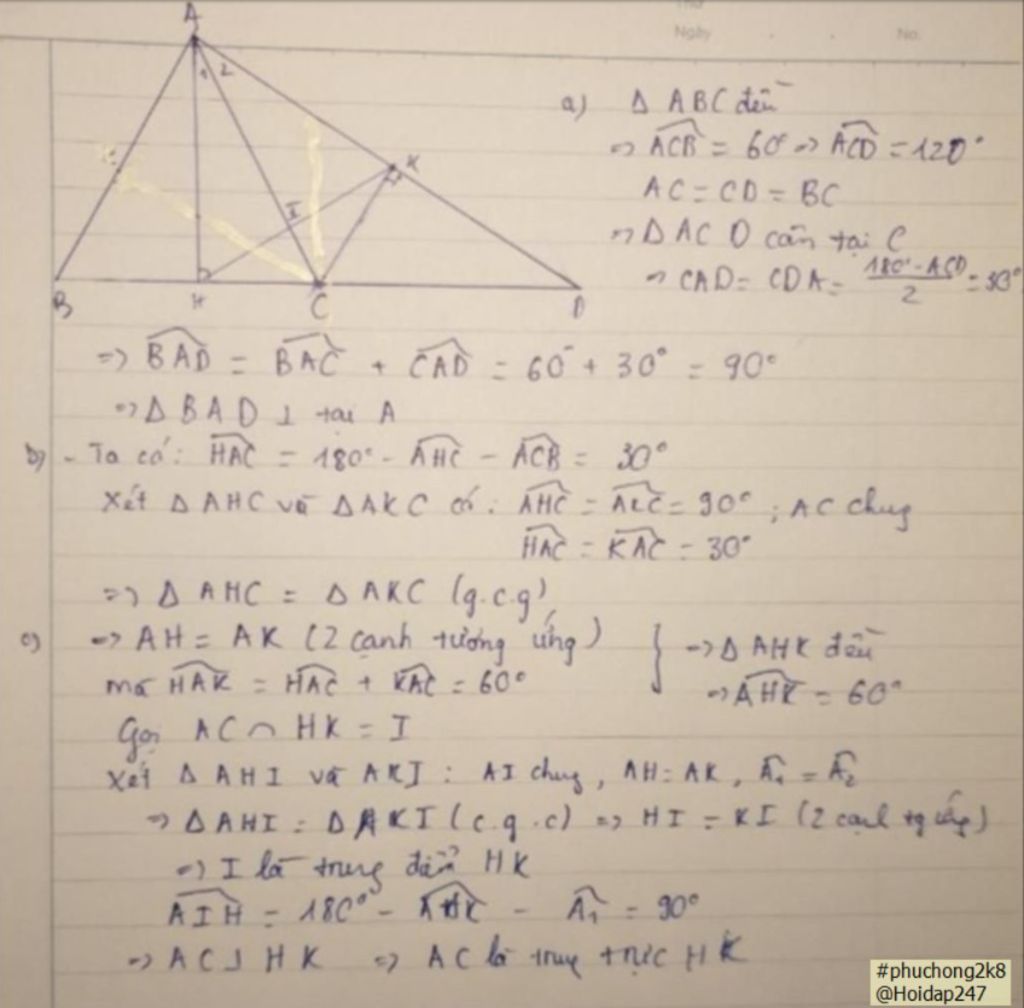 Thứ
Ngày . . No.
A
1 2
K
I
B H C D
a) Δ ABC đều
=> ACB = 60° => ACD = 120°
AC = CD = BC
=> Δ ACD cân tại C
=> CAD = CDA = 180° - ACD / 2 = 30°
=> BAD = BAC + CAD = 60° + 30° = 90°
=> Δ BAD ⊥ tại A
b) - Ta có: HAC = 180° - AHC - ACB = 30°
Xét Δ AHC và Δ AKC có: AHC = AKC = 90° ; AC chung
HAC = KAC = 30°
=> Δ AHC = Δ AKC (g.c.g)
c) => AH = AK (2 cạnh tương ứng)
mà HAK = HAC + KAC = 60°
} => Δ AHK đều
=> AHK = 60°
Gọi AC ∩ HK = I
Xét Δ AHI và AKI : AI chung, AH = AK, A1 = A2
=> Δ AHI = Δ AKI (c.g.c) => HI = KI (2 cạnh tg ứng)
=> I là trung điểm HK
AIH = 180° - AHK - A1 = 90°
=> AC ⊥ HK => AC là trung trực HK
#phuchong2k8
@Hoidap247